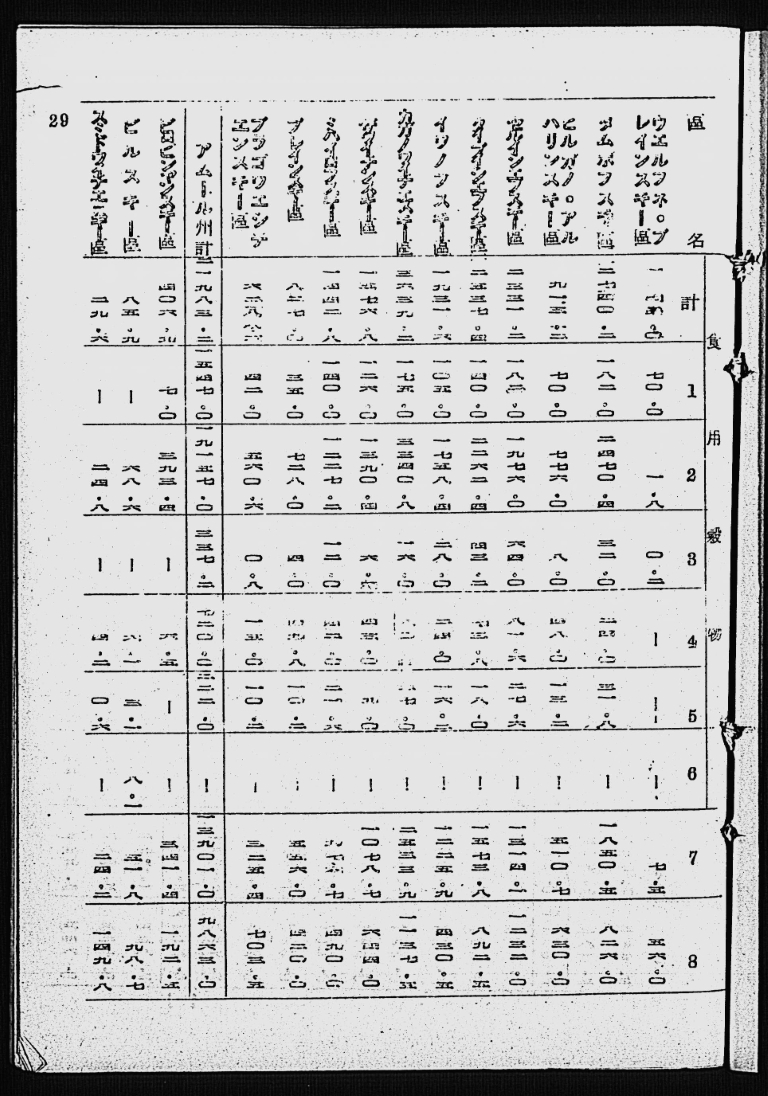 食用穀物
區名 計 1 2 3 4 5 6 7 8
ウエルフネ・ブレインスキー區 七〇・〇 一・八 〇・二 ー ー ー 七・五 五六・〇
タムボフスキー區 二七四〇・二 一八二・〇 二四七〇・四 三二・〇 二四・〇 三一・八 ー 一八五〇・五 八二六・〇
ビルガノ・アルハリンスキー區 九一五・二 七〇・〇 七七六・〇 八・〇 四八・〇 一三・二 ー 五一〇・七 六三〇・〇
二三三一・二 一八二・〇 一九七六・〇 六四・〇 八一・六 二七・六 ー 一三一四・一 一二三二・〇
二五三七・四 一四〇・〇 二二六二・四 四三・二 七三・八 一八・〇 ー 一五七三・八 八九二・五
イワノフスキー區 一九三一・六 一〇五・〇 一七五八・四 二八・〇 二四・〇 一六・二 ー 一二五五・九 四三〇・五
三六三九・二 一七五・〇 三三四〇・八 一六・〇 ー 二五三三・九 一一三七・五
一五七六・八 一二六・〇 一三九〇・四 四五・〇 九・〇 ー 六四四・〇
ミハイロフスキー區 一四四二・八 一四〇・〇 一二二七・二 一二・〇 四二・〇 二一・六 ー 四九〇・〇
ブレインスキー區 八二七・〇 三五・〇 七二八・〇 四・〇 四九・八 一〇・二 ー 五五六・〇 四二〇・〇
ブラゴウエシチエンスキー區 六二八・六 四二・〇 五六〇・六 〇・八 一五・〇 一〇・二 ー 三二五・四 七〇三・五
アムール州計 二一九八三・二 一五四七・〇 一九一五七・〇 三三七・二 七二〇・〇 二二二・〇 ー 一三九〇一・〇 九八六三・〇
四〇六・九 七・〇 三九三・四 ー 六・五 ー ー 三四一・四 一九二・五
ビルスキー區 八五・九 ー 六八・六 ー 六・一 三・一 八・一 五一・八 九八・七
二九・六 ー 二四・八 ー 四・二 〇・六 ー 二四・二 一四九・八
29